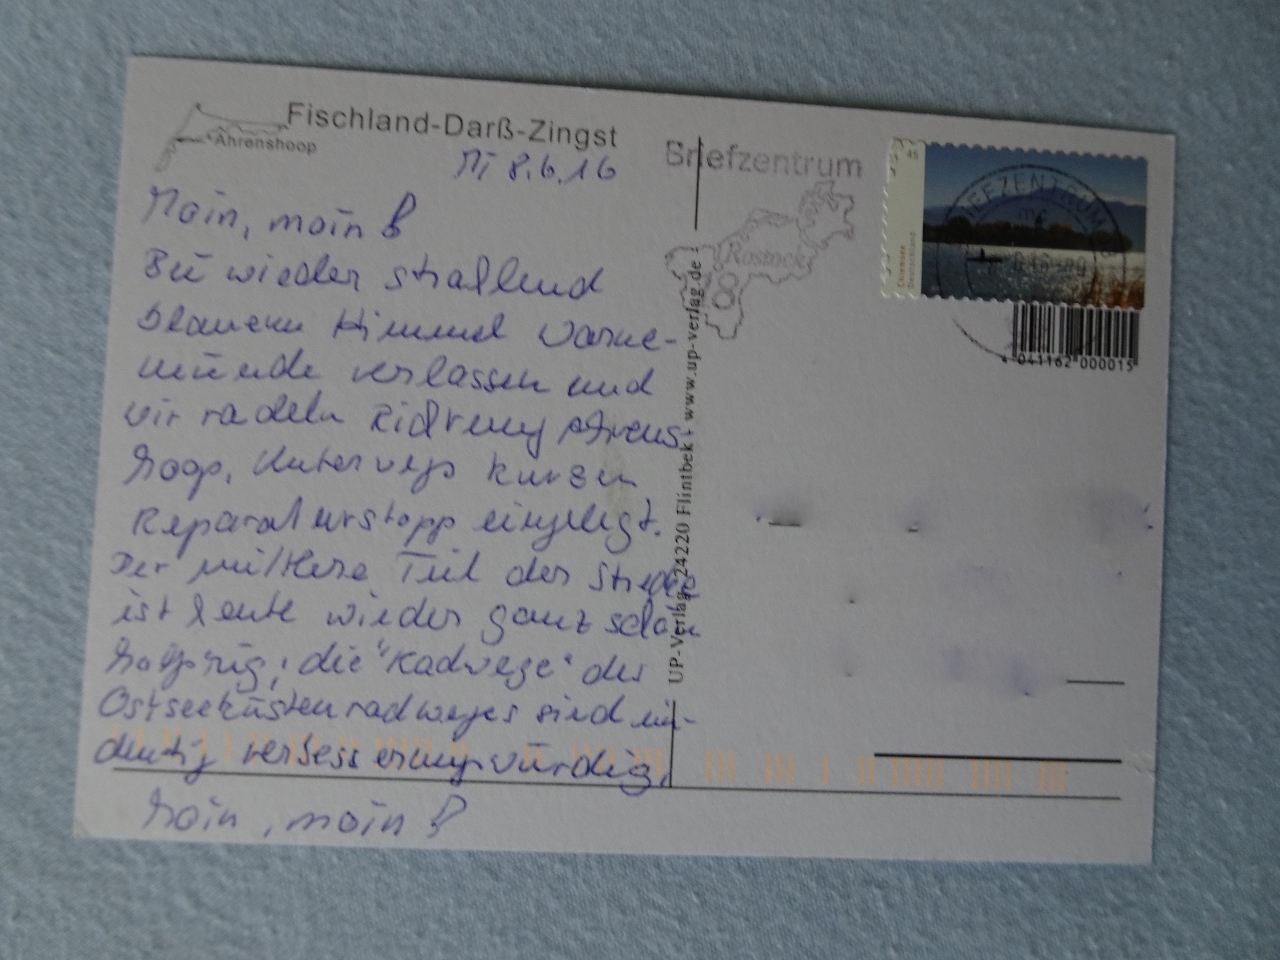 Fischland-Darß-Zingst
Ahrenshoop
Mi 8.6.16
Moin, moin!
Bei wieder strahlend
blauem Himmel Warne-
münde verlassen und
wir radeln Richtung Ahrens-
hoop. Unterwegs kurzen
Reparaturstopp eingelegt.
Der mittlere Teil der Strecke
ist heute wieder ganz schön
holprig, die "Radwege" des
Ostseeküstenradweges sind ein-
deutig verbesserungswürdig.
Moin, moin!
UP-Verlag · 24220 Flintbek · www.up-verlag.de
Briefzentrum
Rostock
18
45
Chiemsee
Deutschland
BRIEFZENTRUM
4 041162 000015